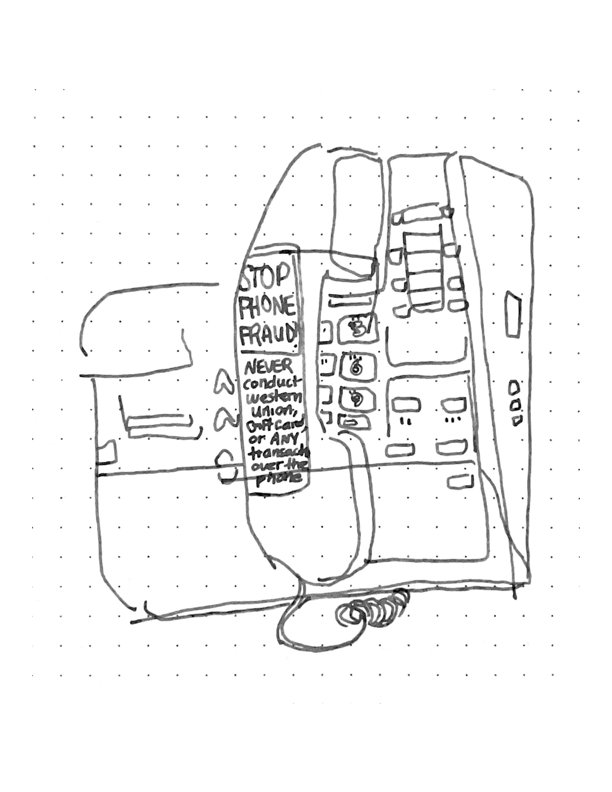 STOP
PHONE
FRAUD
NEVER
conduct
western
union,
Giftcard
or ANY
transact
over the
phone
3
6
9